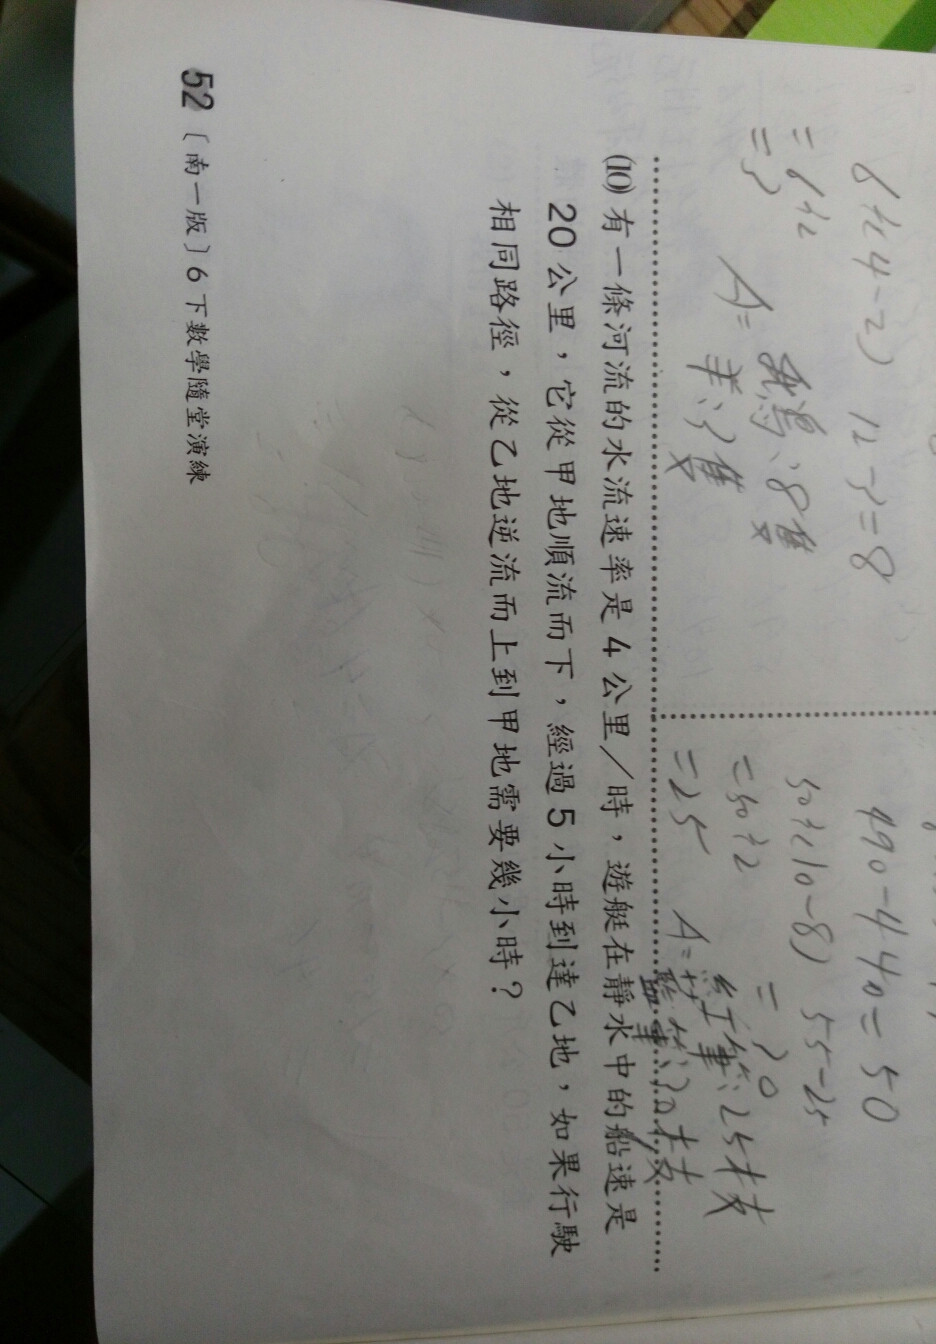 8÷(4-2)
=8÷2
=3
12-3=8
A=
鵝:8隻
羊:3隻
490-440=50
50÷(10-8)
=50÷2
=25
55-25
=30
A=
紅筆:25枝
藍筆:30枝
(10) 有一條河流的水流速率是 4 公里/時,遊艇在靜水中的船速是
20 公里,它從甲地順流而下,經過 5 小時到達乙地,如果行駛
相同路徑,從乙地逆流而上到甲地需要幾小時?
52〔南一版〕6 下數學隨堂演練